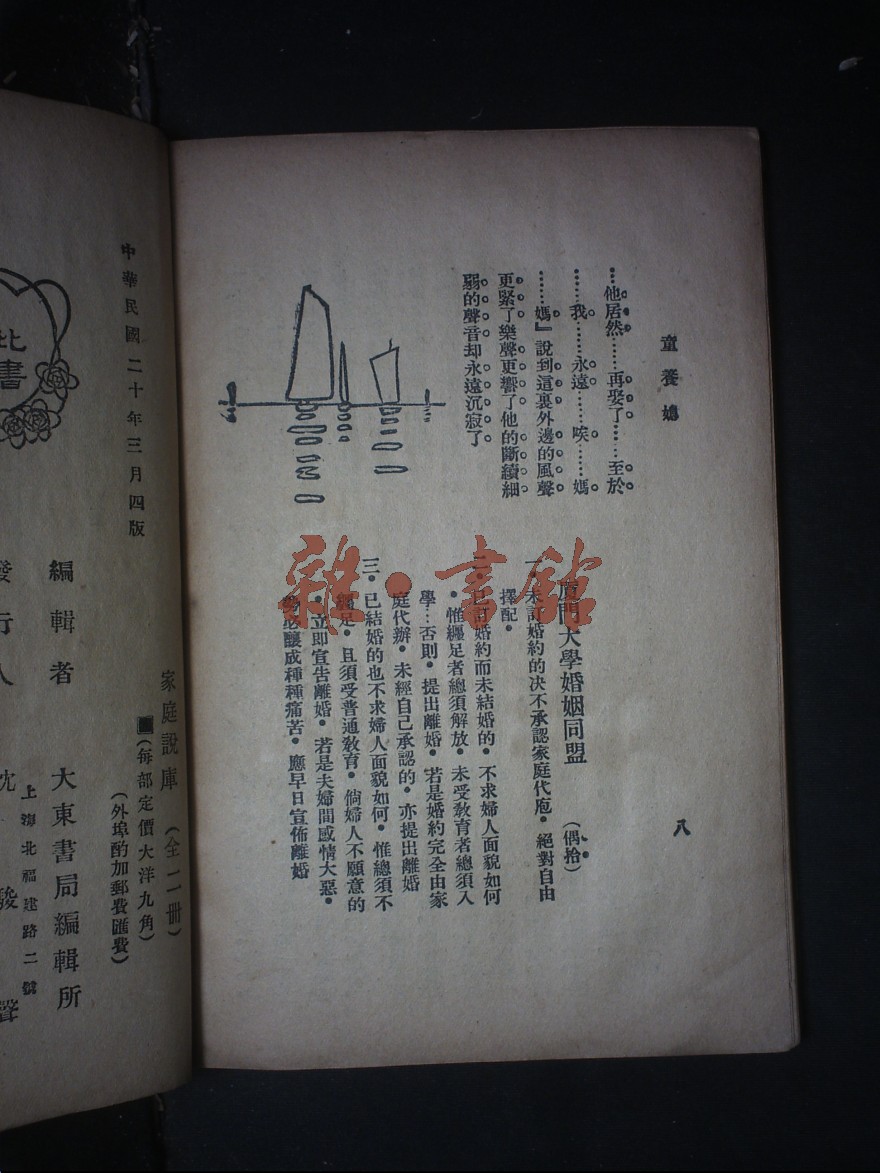 童養媳
八
…他居然……再娶了……至於
……我……永遠……唉……媽
……媽』說到這裏外邊的風聲
更緊了樂聲更響了他的斷續細
弱的聲音却永遠沉寂了
廈門大學婚姻同盟 (偶拾)
一•未訂婚約的决不承認家庭代庖•絕對自由
擇配•
二•已訂婚約而未結婚的•不求婦人面貌如何
•惟纏足者總須解放•未受教育者總須入
學…否則•提出離婚•若是婚約完全由家
庭代辦•未經自己承認的•亦提出離婚
三•已結婚的也不求婦人面貌如何•惟總須不
纏足•且須受普通教育•倘婦人不願意的
•立即宣告離婚•若是夫婦間感情大惡•
勢必釀成種種痛苦•應早日宣佈離婚
雜·書館
家庭說庫 (全二冊)
■(每部定價大洋九角)
(外埠酌加郵費匯費)
中華民國二十年三月四版
編輯者 大東書局編輯所
上海北福建路二號
發行人 沈駿聲
此書